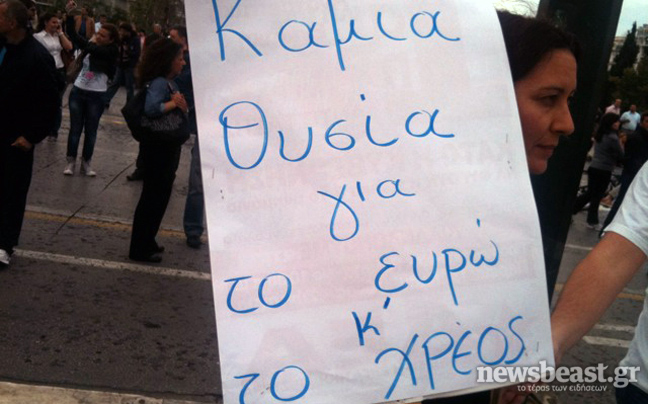 Καμια
Θυσία
για
το ευρώ
κ'
το χρέος
newsbeast.gr
το τέρας των ειδήσεων